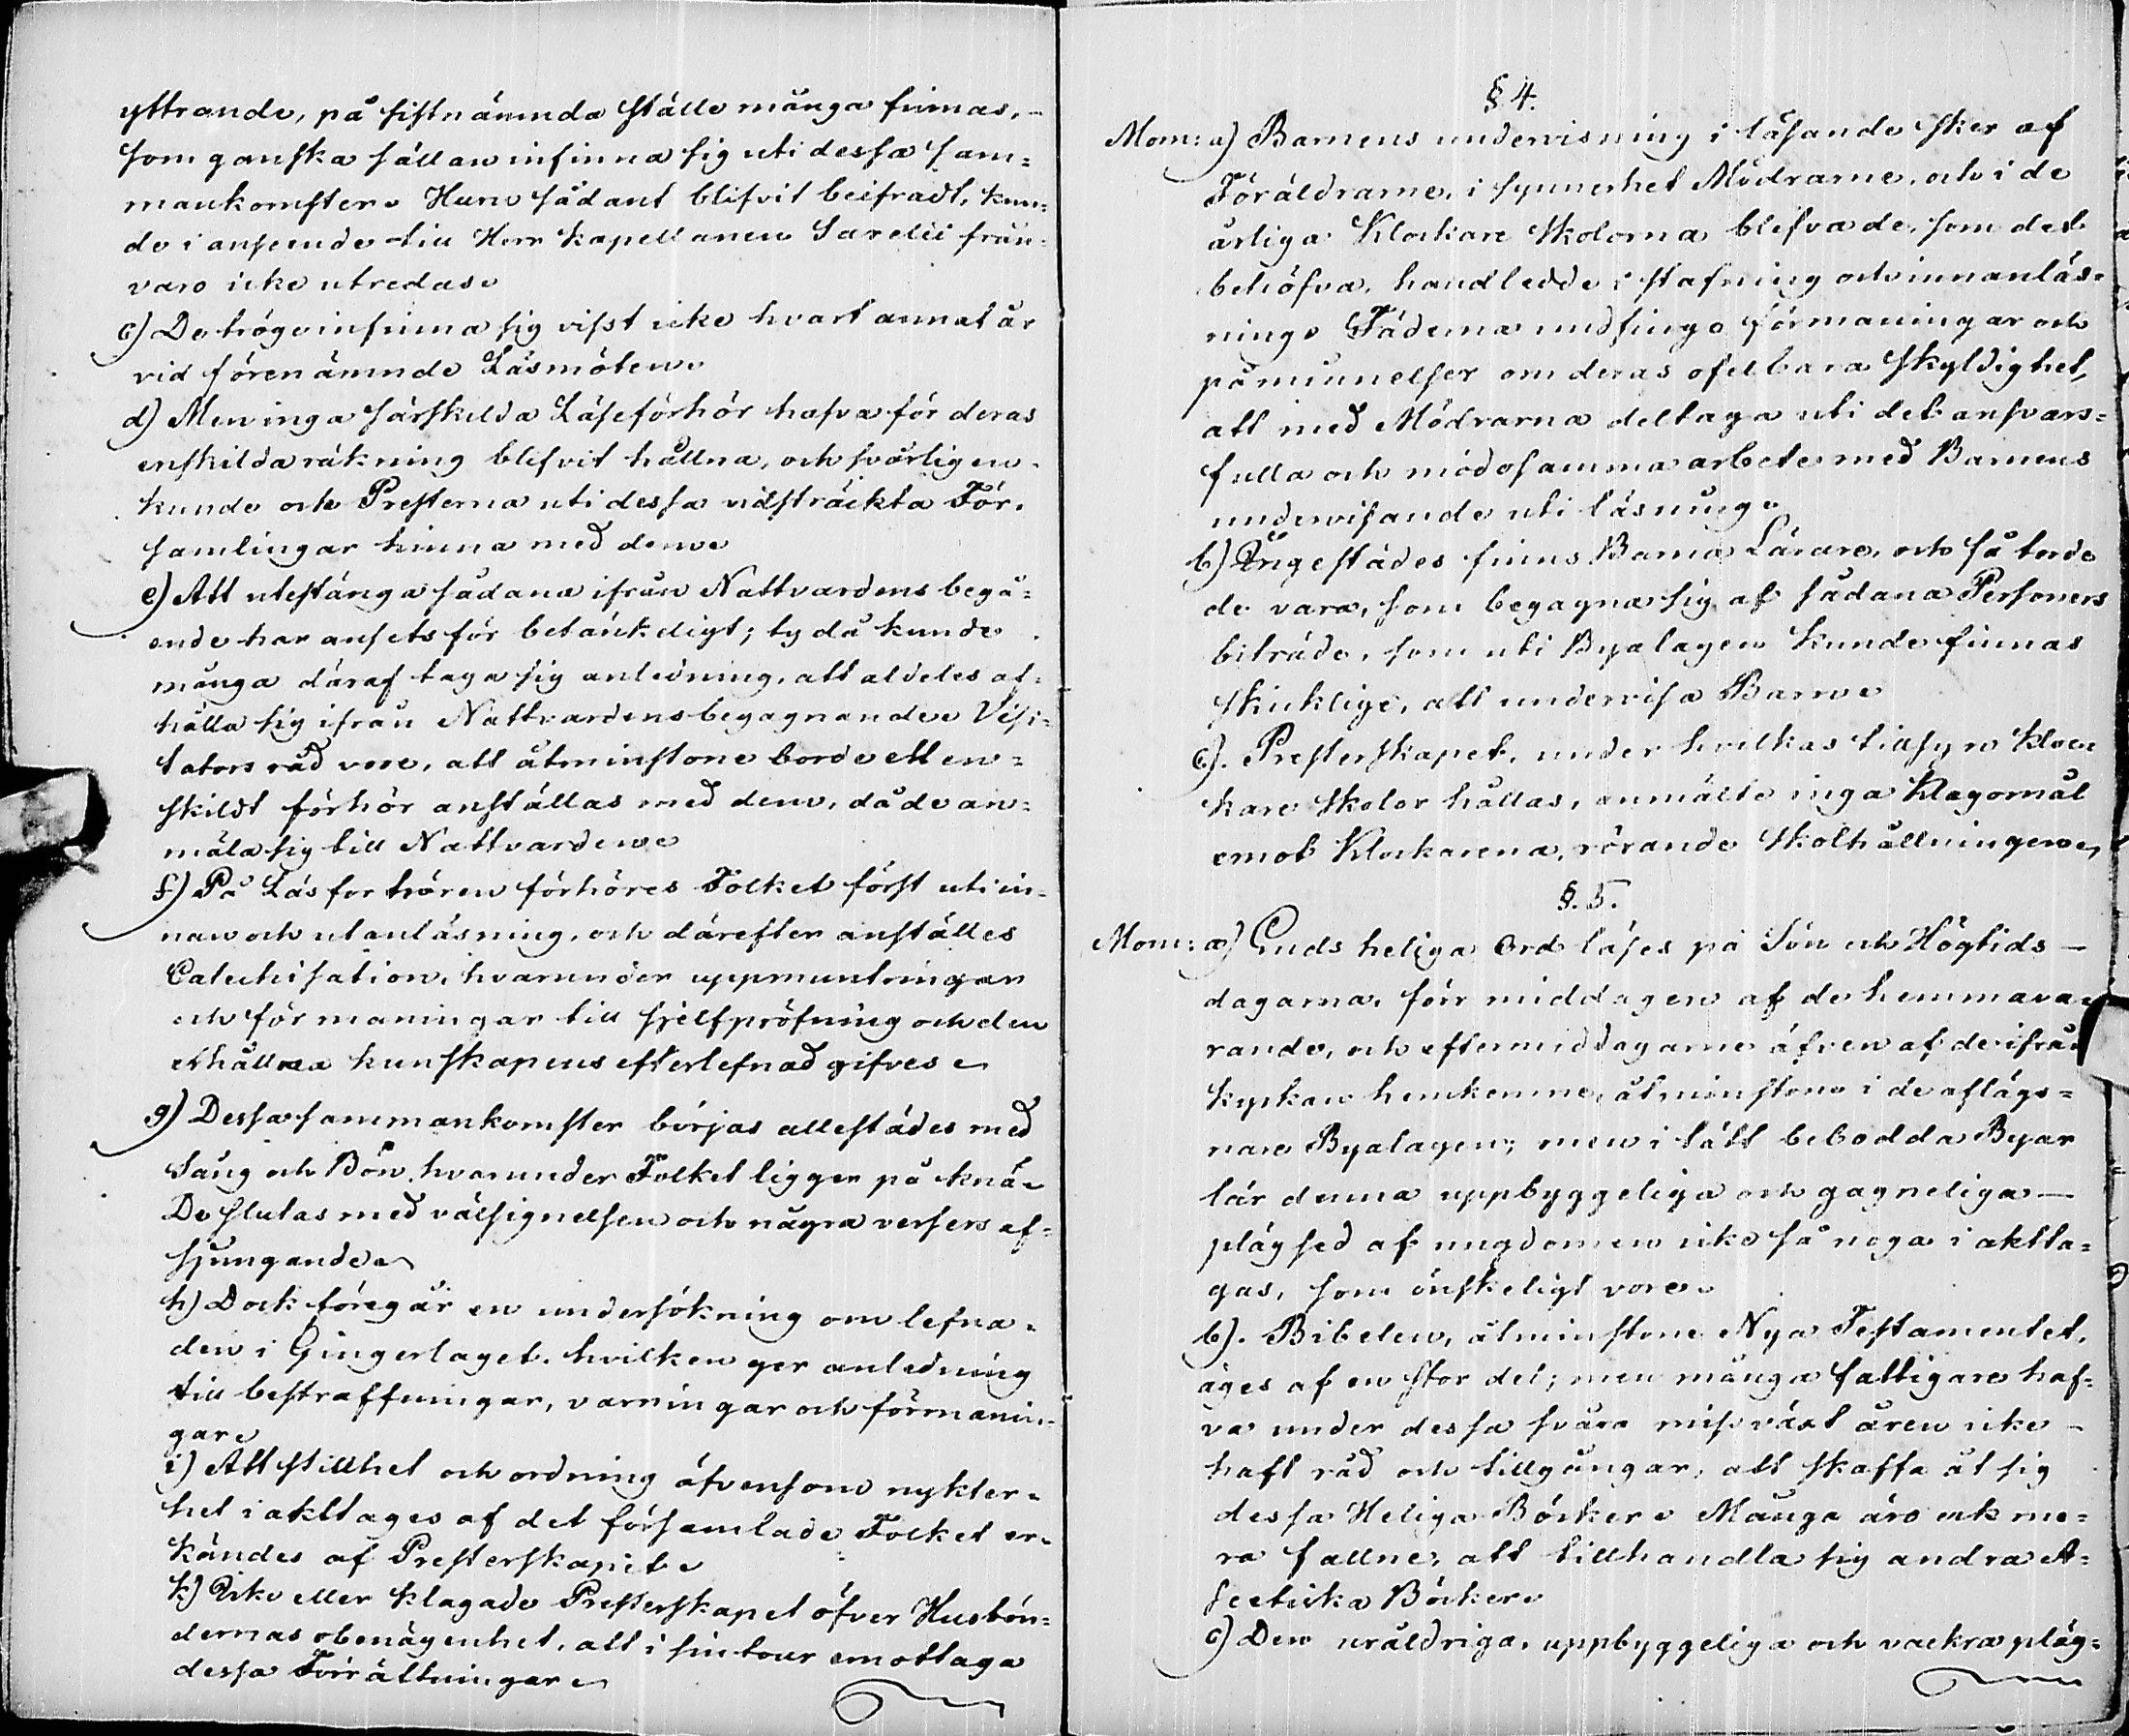 yttrande, på sistnämnda ställe många finnas, -
som ganska sällan infinna sig uti dessa sam=
mankomster. Huru sådant blifvit beifradt, kun=
de i anseende till Herr Kapellanen Sarelii från=
varo icke utredas.
c) De tröge infinna sig visst icke hvart annat år
vid förenämnde Läsmöten.
d) Men inga särskilda Läseförhör hafva för deras
enskilda räkning blifvit hållna, och svårligen
kunde och Presterna uti dessa vidsträckta För=
samlingar hinna med dem.
e) Att utestänga sådana ifrån Nattvardens begå=
ende har ansets för betänkeligt; ty då kunde
många däraf taga sig anledning, att aldeles af=
hålla sig ifrån Nattvardens begagnande. Visi=
tators råd vore, att åtminstone borde ett en=
skildt förhör anställas med dem, då de an=
mäla sig till Nattvarden.
f) På Läsforhören förhöres Folket först uti in=
nan och utanläsning, och därefter anställes
Catechisation, hvarunder uppmuntringar
och förmaningar till sjelfpröfning och den
erhållna kunskapens efterlefnad gifves.
g) Dessa sammankomster börjas allestädes med
Sång och Bön, hvarunder Folket ligger på knä.
De slutas med välsignelsen och några versers af=
sjungande.
h) Dock föregår en undersökning om lefna=
den i Gingerlaget, hvilken ger anledning
till bestraffningar, varningar och förmanin=
gar.
i) Att stillhet och ordning äfvensom nykter=
het iakttages af det församlade Folket er=
kändes af Presterskapet.
k) Icke eller klagade Presterskapet öfver Husbön=
dernas obenägenhet, att i sin tour emottaga
dessa Förrättningar.
§ 4.
Mom: a) Barnens undervisning i läsande sker af
Föräldrarne, i synnerhet Mödrarne, och i de
årliga Klockare Skolorna blefvo de, som det
behöfva, handledde i stafning och innanläs=
ning. Fäderna undfingo förmaningar och
påminnelser om deras ofelbara skyldighet,
att med Mödrarna deltaga uti det ansvars=
fulla och mödosamma arbete med Barnens
undervisande uti läsning.
b) Ingestädes finns Barna Lärare, och få torde
de vara, som begagna sig af sådana Personers
biträde, som uti Byalagen kunde finnas
skicklige, att undervisa Barn.
c). Presterskapet, under hvilkas tillsyn Kloc=
kare Skolor hållas, anmälte inga Klagomål
emot Klockarena, rörande Skolhållningen.
§. 5.
Mom: a) Guds heliga Ord läses på Sön och Högtids -
dagarna, förr middagen af de hemmava=
rande, och eftermiddagarne äfven af de ifrån
kyrkan hemkomne, åtminstone i de aflägs=
nare Byalagen; men i tätt bebodda Byar
lär denna uppbyggeliga och gagneliga -
plägsed af ungdomen icke så noga iaktta=
gas, som önskeligt vore.
b). Bibelen, åtminstone Nya Testamentet,
äges af en stor del; men många fattigare haf=
va under dessa svåra missväxt åren icke -
haft råd och tillgångar, att skaffa åt sig
dessa Heliga Böcker. Många äro ock me=
ra fallne, att tillhandla sig andra A=
scetiska Böcker.
c) Den uråldriga, uppbyggeliga och vackra pläg=